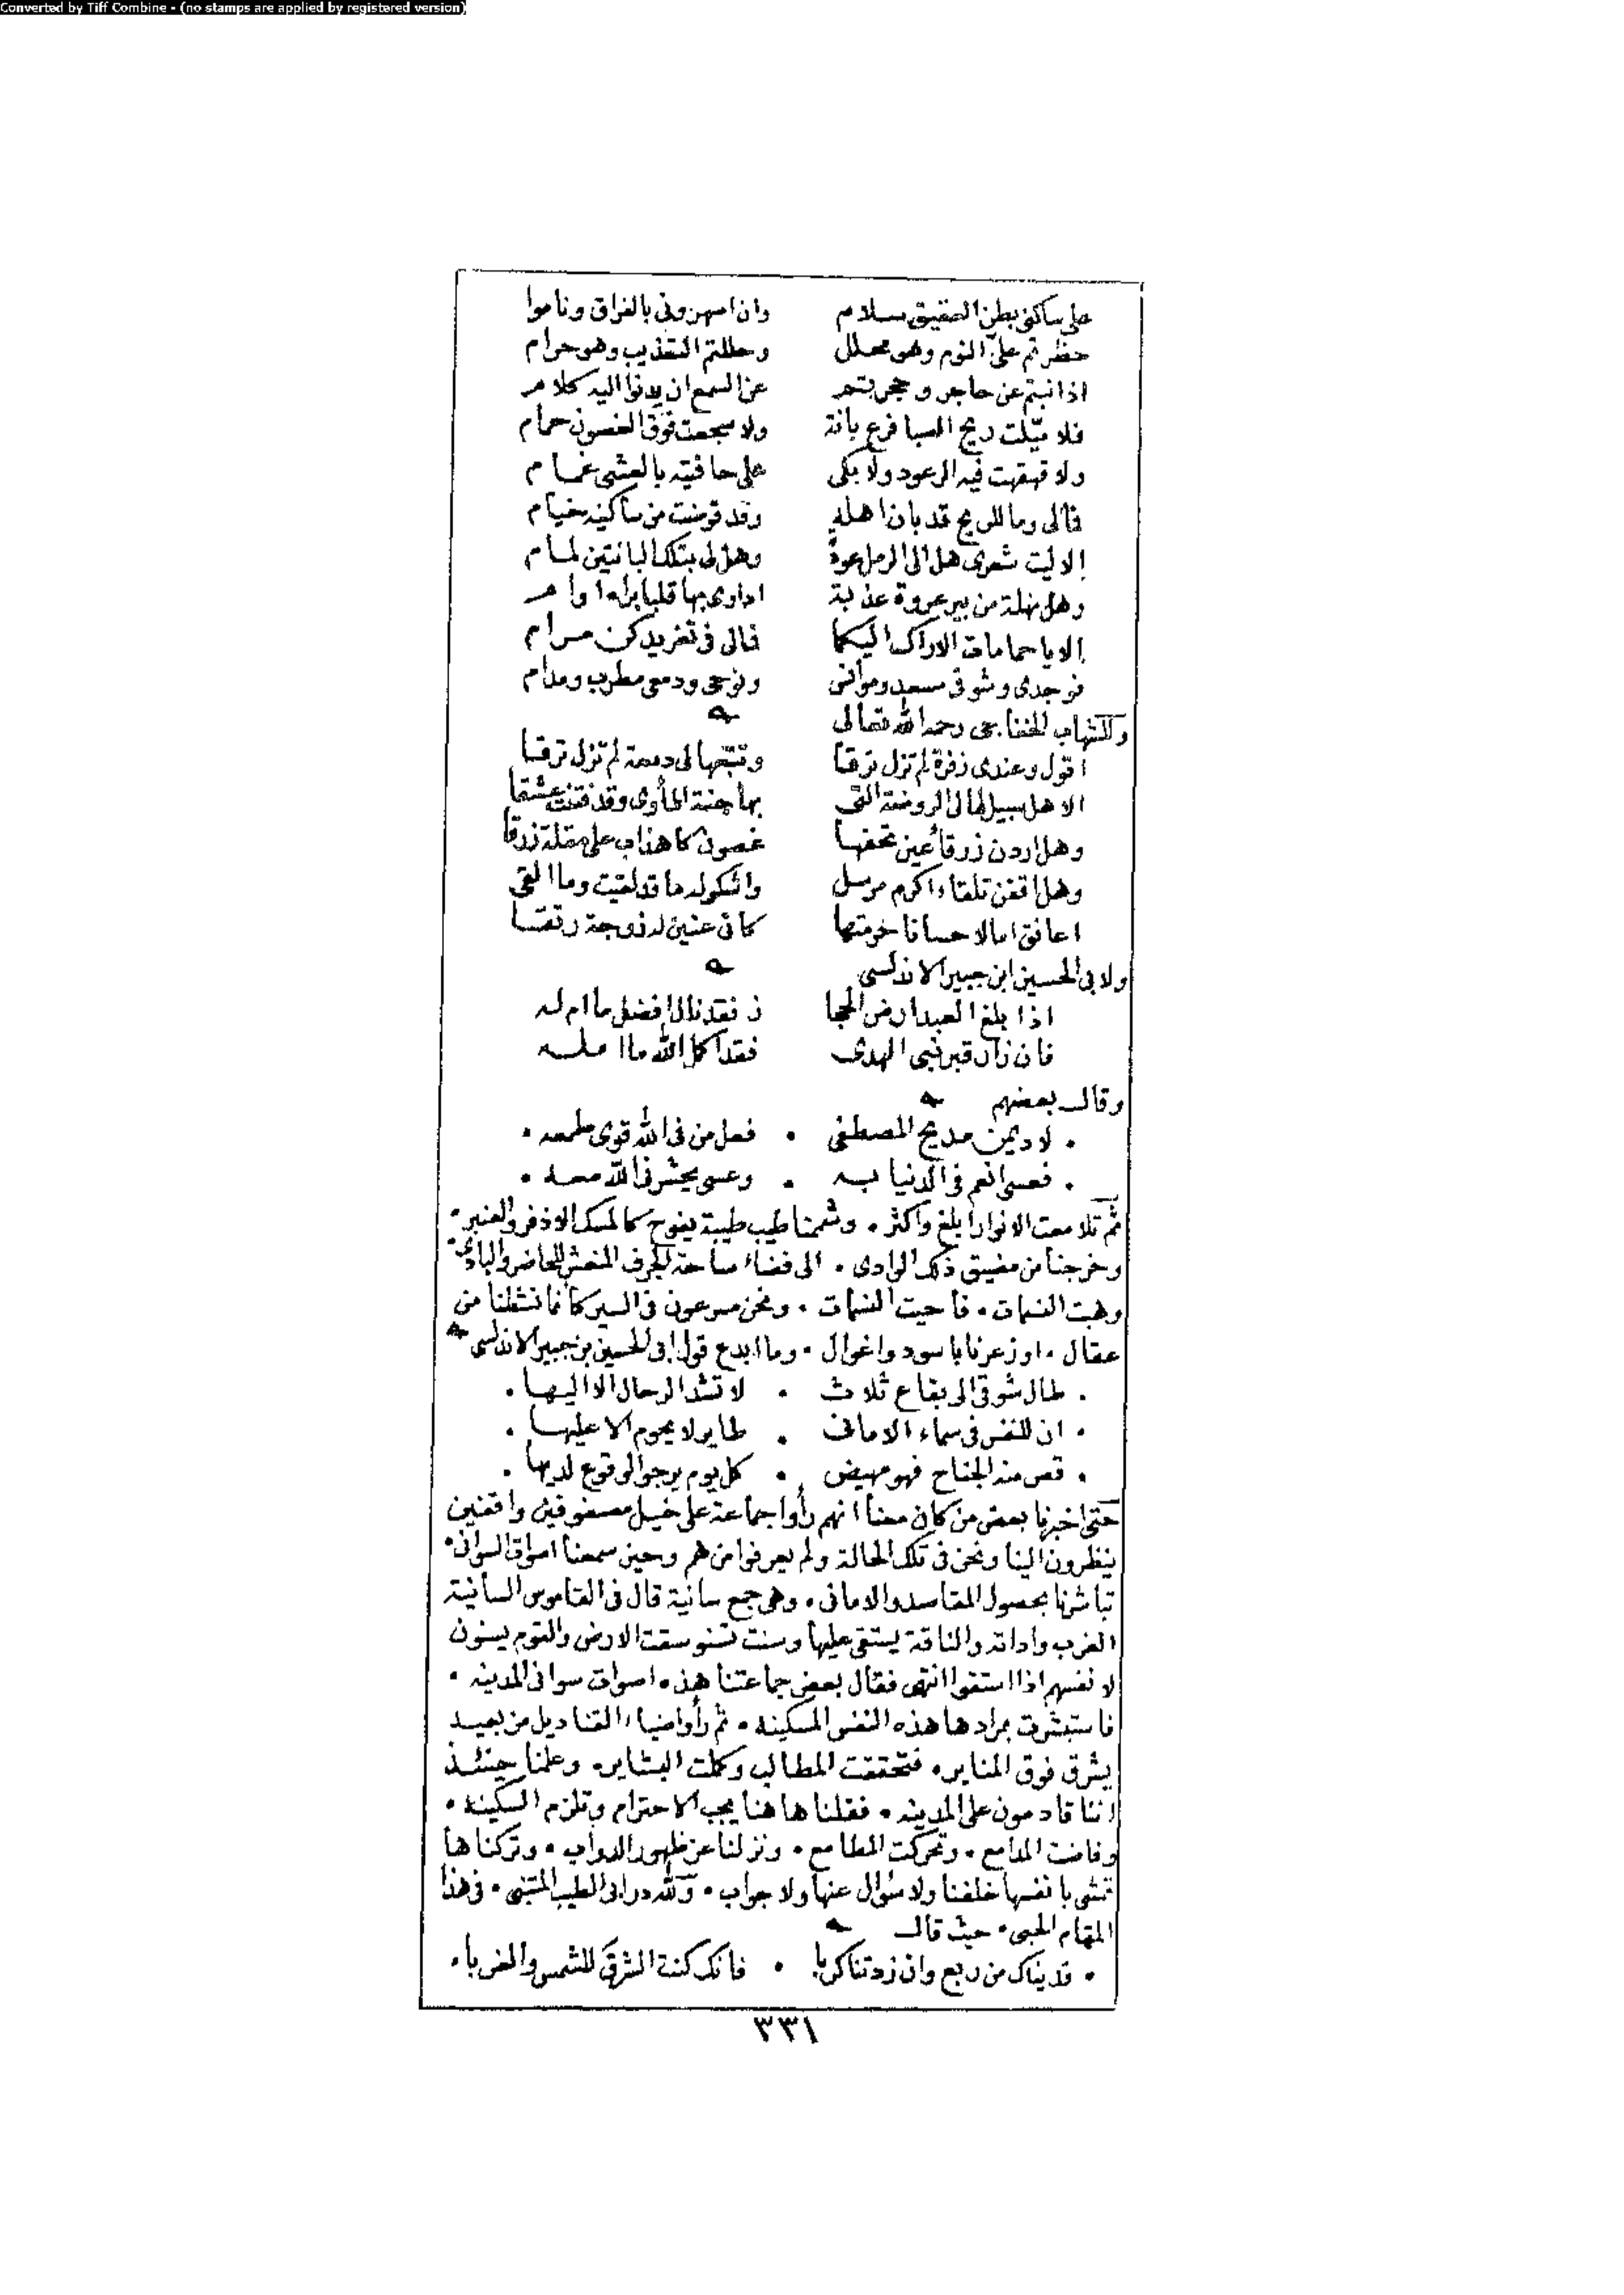 Converted by Tiff Combine - (no stamps are applied by registered version)
على ساكنى بطن العقيق سلام وان اسهرونى بالفراق وناموا
حظرتم علىّ النوم وهو محلل وحللتم التعذيب وهو حرام
اذا نبتم عن حاجر وحجرتم عن السمع ان يدنوا اليه كلام
فلا ميّلت ريح الصبا فرع بانة ولا سجعت فوق الغصون حمام
ولا قهقهت فيه الرعود ولا بكى على حافتيه بالعشى غمام
فمالى وما للربع قد بان اهله وقد قوضت من ساكنيه خيام
الا ليت شعرى هل الى الرمل عودة وهل لى بتلك البانتين لمام
وهل نهلة من بير عروة عذبة اداوى بها قلبا براه اوام
الا يا حمامات الاراك اليكما فمالى فى تغريدكن مرام
فوجدى وشوقى مسعد وموانس ونوحى ودمعى مطرب ومدام
وللشهاب الخفاجى رحمه الله تعالى
اقول وعندى زفرة لم تزل ترقا وتتبعها لى دمعة لم تزل ترقا
الا هل سبيل لى الى الروضة التى بها جنة المأوى وقد فتنت عشقا
وهل اردن زرقاء عين تحفها غصون كاهداب على مقلة زرقا
وهل اقفن تلقاء اكرم مرسل واشكو له ما قد لقيت وما القى
اعانق امالا حسانا خرمتها كانى عنين له زوجة رتقا
ولابى الحسين ابن جبير الاندلسى
اذا بلغ العبد ارض الحجا ز فقد نال افضل ما ام له
فان زار قبر نبى الهدى فقد اكمل الله ما امله
وقال بعضهم
لاديمن مديح المصطفى فعل من فى الله قوى طمعه
فعسى انعم فى الدنيا به وعسى يحشرنى الله معه
ثم تلامعت الانوار ابلغ واكثر وشممنا طيب طيبة يفوح كالمسك الاذفر والعنبر
وخرجنا من مضيق ذلك الوادى الى فضاء ساحة الجرف المنعش للحاضر والبادى
وهبت النسمات فاحيت النسمات ونحن مسرعون فى السير كأنما نشطنا من
عقال او زعرنا باسود واغوال وما ابدع قول ابى الحسين بن جبير الاندلسى
طال شوقى الى بقاع ثلاث لا تشد الرحال الا اليها
ان للنفس فى سماء الامانى طاير لا يحوم الا عليها
قص منه الجناح فهو مهيض كل يوم يرجو الوقوع لديها
حتى اخبرنا بعض من كان معنا انهم رأوا جماعة على خيل مصفوفين واقفين
ينظرون الينا ونحن فى تلك الحالة ولم يعرفوا من هم وحين سمعنا اصوات السوانى
تباشرنا بحصول المقاصد والامانى وهى جمع سانية قال فى القاموس السانية
الغرب واداته والناقة يستقى عليها وسنت تسنو سقت الارض والقوم يسنون
لانفسهم اذا استقوا انتهى فقال بعض جماعتنا هذه اصوات سوانى المدينه
فاستبشرت بمرادها هذه النفس المسكينه ثم رأوا ضياء القناديل من بعيد
يشرق فوق المناير فتحققت المطالب وكملت البشاير وعلمنا حينئذ
اننا قادمون على المدينه فقلنا هاهنا يجب الاحترام وتلزم السكينه
وفاضت المدامع وتحركت المطامع ونزلنا عن ظهور الدواب وتركناها
تمشى بانفسها خلفنا ولا سؤال عنها ولا جواب ولله در ابى الطيب المتنبى فى هذا
المقام الحبى حيث قال
فديناك من ربع وان زدتنا كربا فانك كنت الشرق للشمس والغربا
٣٣١